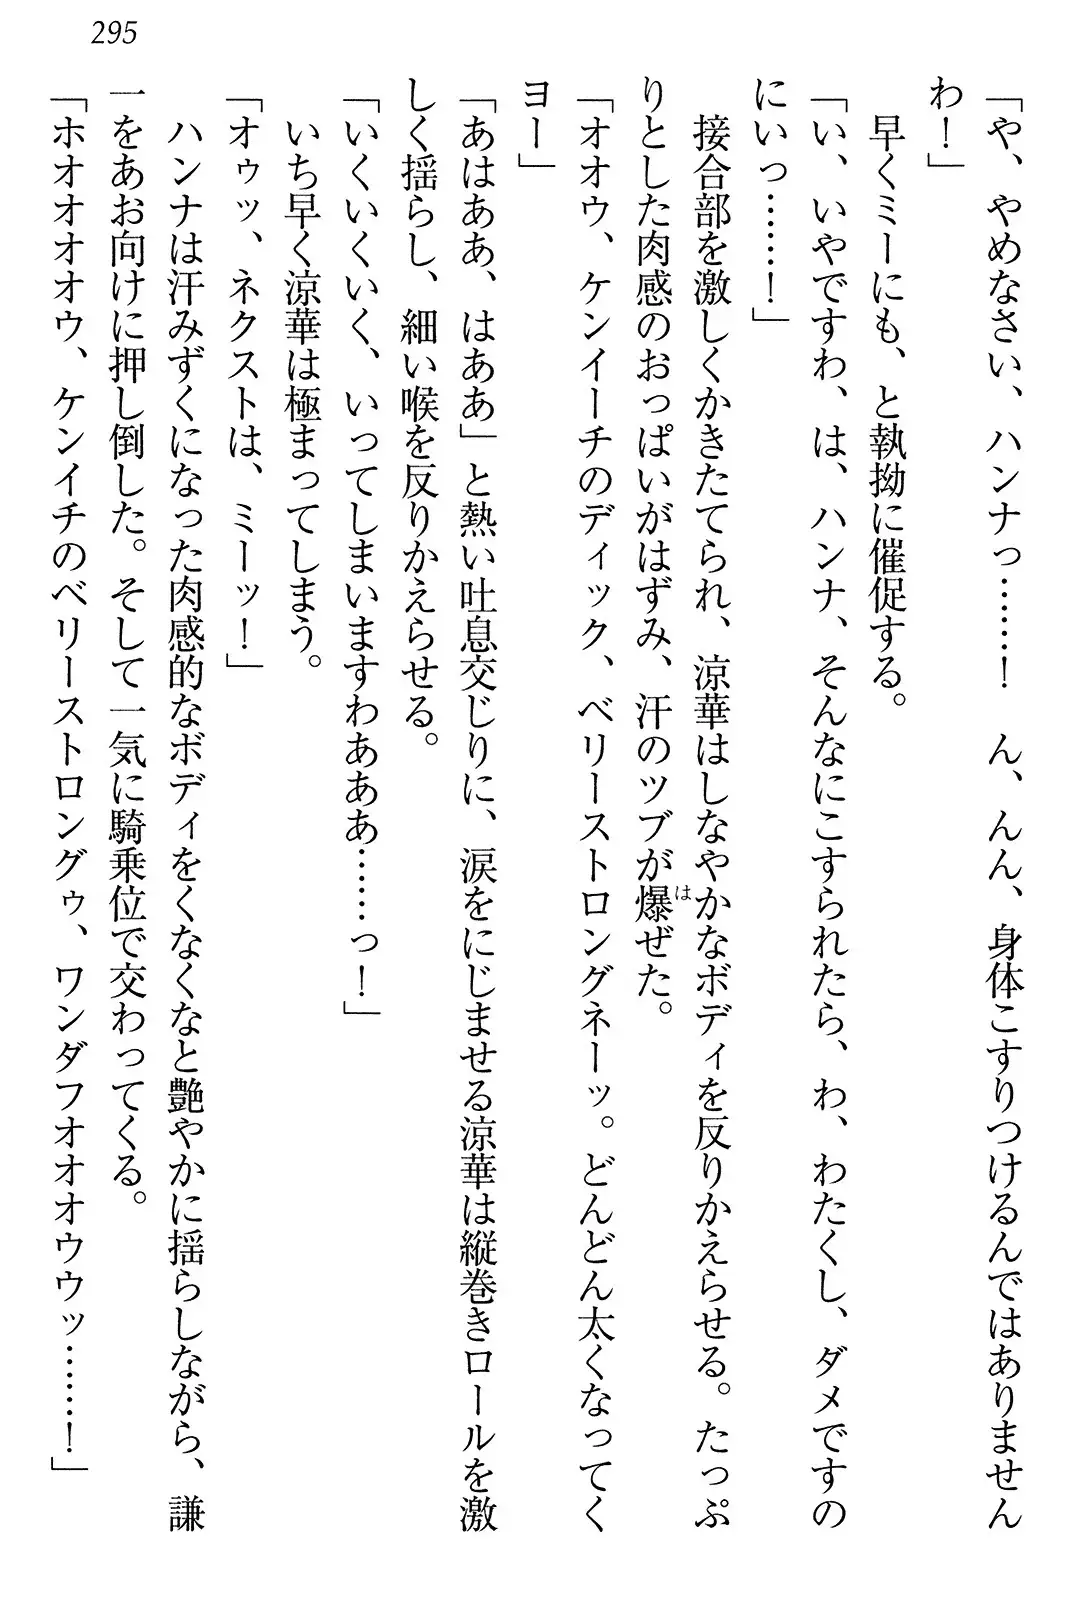 295
「や、やめなさい、ハンナっ……！　ん、んん、身体こすりつけるんではありません
わ！」
　早くミーにも、と執拗に催促する。
「い、いやですわ、は、ハンナ、そんなにこすられたら、わ、わたくし、ダメですの
にいっ……！」
　接合部を激しくかきたてられ、涼華はしなやかなボディを反りかえらせる。たっぷ
りとした肉感のおっぱいがはずみ、汗のツブが爆ぜた。
は
「オオウ、ケンイーチのディック、ベリーストロングネーッ。どんどん太くなってく
ヨー」
「あはああ、はああ」と熱い吐息交じりに、涙をにじませる涼華は縦巻きロールを激
しく揺らし、細い喉を反りかえらせる。
「いくいくいく、いってしまいますわあああ……っ！」
　いち早く涼華は極まってしまう。
「オゥッ、ネクストは、ミーッ！」
　ハンナは汗みずくになった肉感的なボディをくなくなと艶やかに揺らしながら、謙
一をあお向けに押し倒した。そして一気に騎乗位で交わってくる。
「ホオオオオウ、ケンイチのベリーストロングゥ、ワンダフオオオウウッ……！」